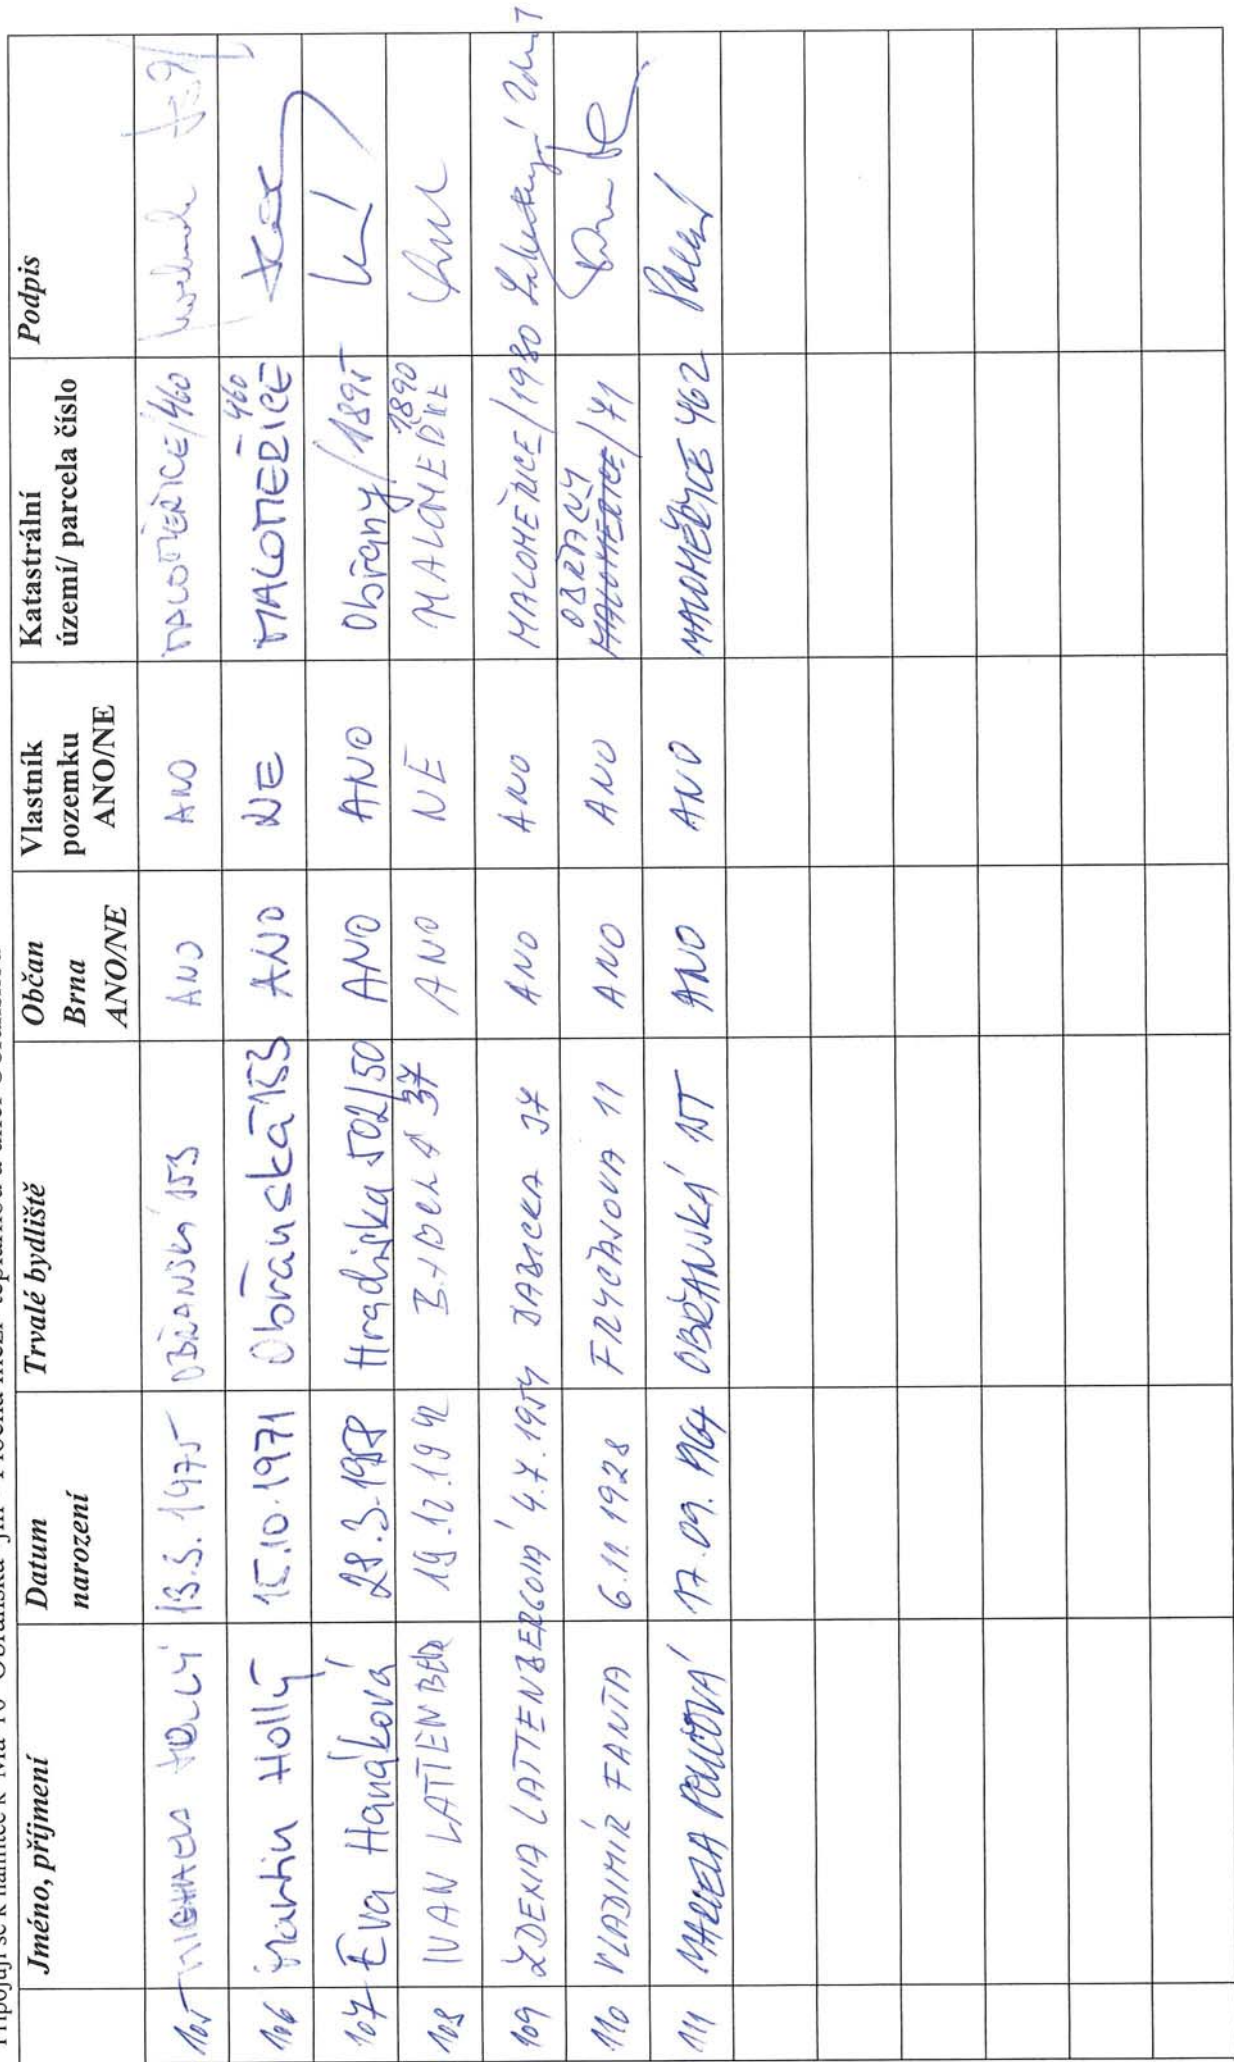 Připojuji se k námitce k Ma-10 Obřanská - jih - Plocha mezi teplárnou a ulicí Obřanskou
Jméno, příjmení | Datum narození | Trvalé bydliště | Občan Brna ANO/NE | Vlastník pozemku ANO/NE | Katastrální území/ parcela číslo | Podpis
105 MICHAELA HOLLÝ 13.3.1975 OBŘANSKÁ 153 ANO ANO MALOMĚŘICE/460
106 Martin Hollý 15.10.1971 Obřanská 153 ANO NE MALOMĚŘICE 460
107 Eva Hanáková 28.3.1958 Hradiska 502/50 ANO ANO Obřany/1895
108 IVAN LATTENBERG 19.12.1942 37 ANO NE MALOMĚŘICE 1890
109 ZDENA LATTENBERGOVÁ 4.7.1954 37 ANO ANO MALOMĚŘICE/1980
110 VLADIMÍR FANTA 6.11.1928 FRYČAJOVA 11 ANO ANO OBŘANY MALOMĚŘICE/71
111 MARCELA 17.09.1964 OBŘANSKÁ 155 ANO ANO MALOMĚŘICE 462